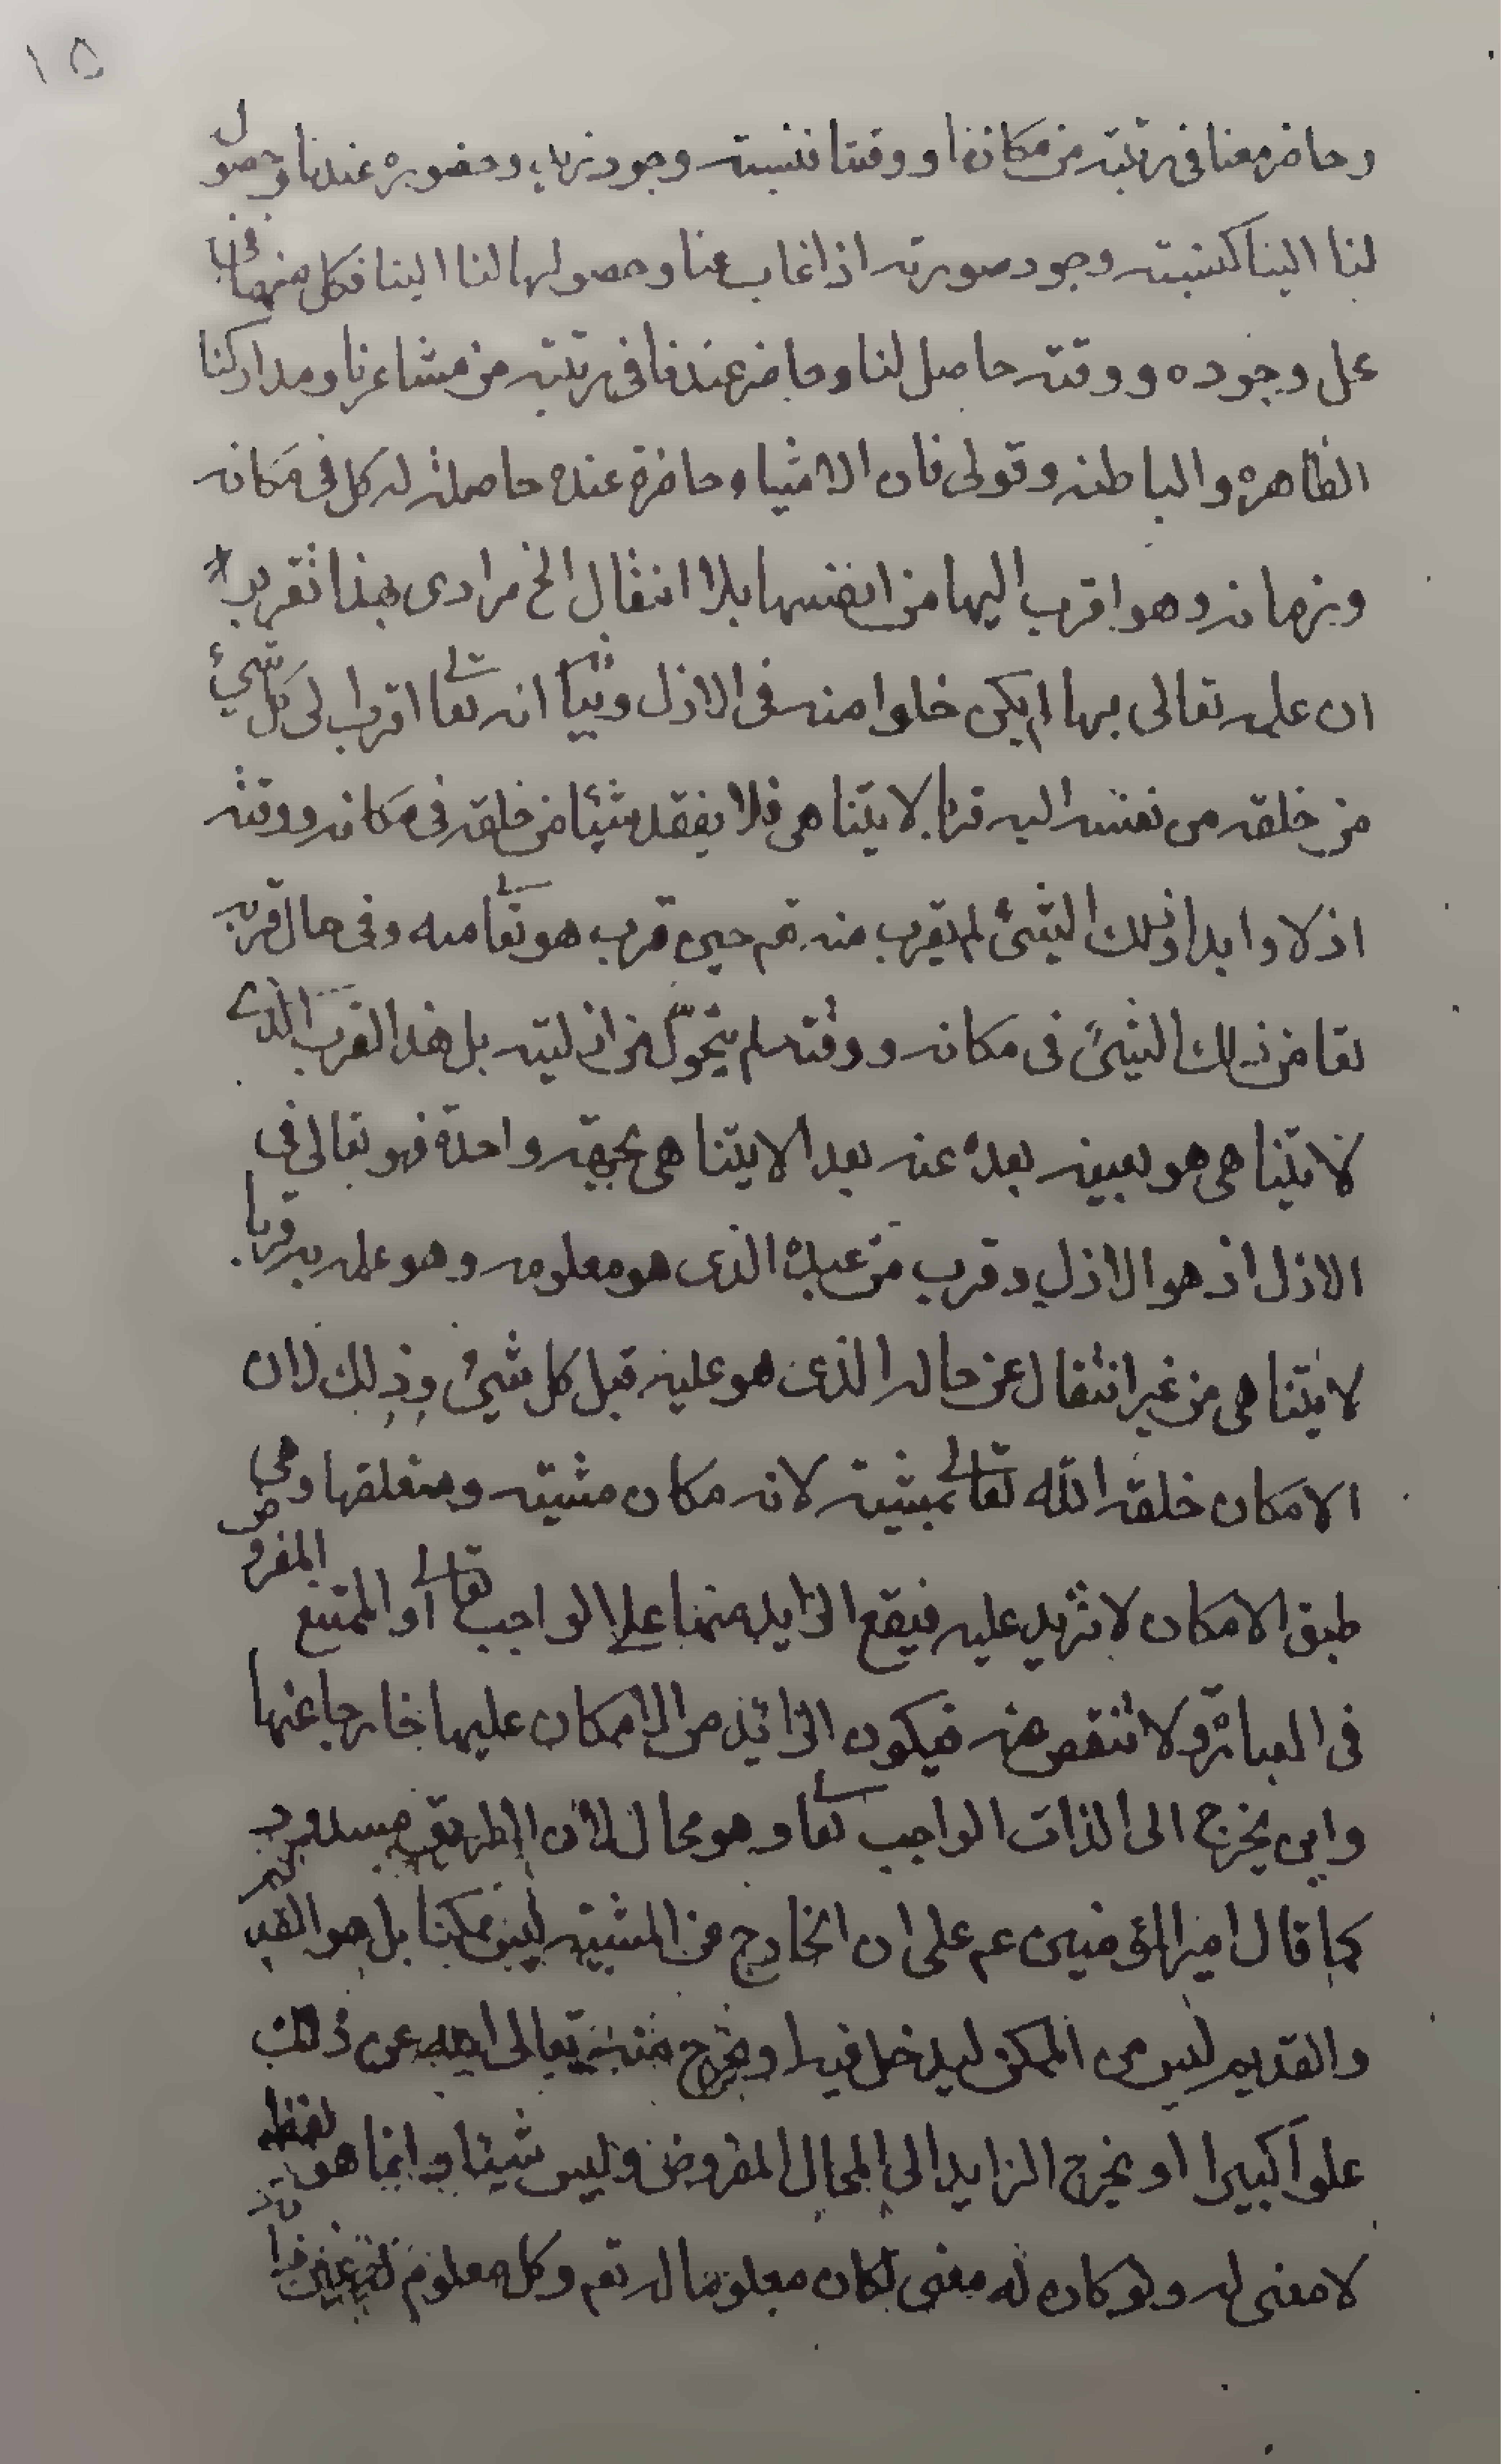 ١٥
وحاضر معنا فى رتبته من مكاننا ووقتنا فنسبته وجود زيد وحضوره عندنا وحصوله
لنا الينا كنسبته وجود صورته اذا غاب عنا وحصولها لنا الينا فكل منهما فى
محل وجوده ووقته حاصل لنا وحاضر عندنا فى رتبته من مشاعرنا ومداركنا
الظاهره والباطنه وقولى فان الاشياء حاضرة عنده حاصلة له كل فى مكانه
وزمانه وهو اقرب اليها من انفسها بلا انتقال الخ مرادى بهذا تقريب
ان علمه تعالى بها لم يكن خلوا منه فى الازل وشيئا انه تعالى اقرب الى كل شىء
من خلقه من نفسه اليه قربا لا يتناهى فلا يفقد شيئا من خلقه فى مكانه ووقته
اذلا وابدا وذلك الشئ لم يقرب منه تعم حين قرب هو تعالى منه وفى حال قربه
تعا من ذلك الشئ فى مكانه ووقته لم يتحول من ازليته بل هذا القرب الذى
لا يتناهى هو بعينه بعده عنه بعدا لا يتناهى بجهة واحدة فهو تعالى فى
الازل اذ هو الازل وقرب من عبده الذى هو معلومه وهو علمه به قربا
لا يتناهى من غير انتقال عن حاله الذى هو عليه قبل كل شىء وذلك لان
الامكان خلقه الله تعالى بمشيته لانه مكان مشيته ومتعلقها وهى
طبق الامكان لا تزيد عليه فيقع الزايد منها على الواجب تعالى او الممتنع المفروض
فى العبارة ولا تنقص عنه فيكون الزائد من الامكان عليها خارجا عنها
واين يخرج الى الذات الواجب تعالى وهو محال لان الطريق مسدود
كما قال امير المؤمنين عم على ان الخارج من المشيته ليس ممكنا بل هو القديم
والقديم ليس من الممكن ليدخل فيه او يخرج منه تعالى الله عن ذلك
علوا كبيرا او يخرج الزايد الى المحال المفروض وليس شيئا وانما هو لفظ
لا معنى له ولو كان له معنى لكان معلوما له تعم وكل معلوم